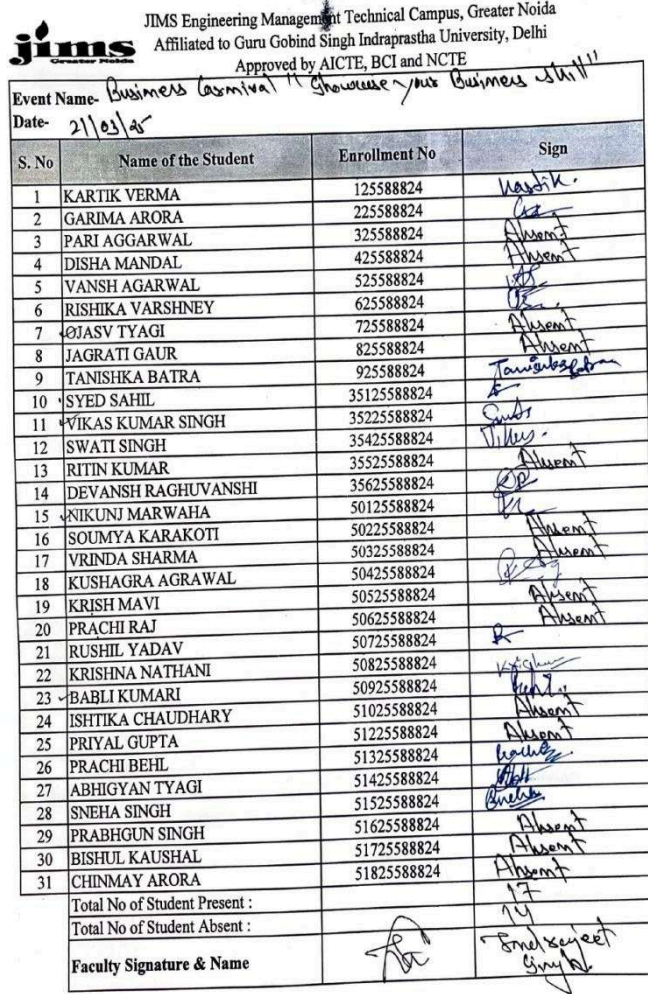 JIMS Engineering Management Technical Campus, Greater Noida
jims
Greater Noida
Affiliated to Guru Gobind Singh Indraprastha University, Delhi
Approved by AICTE, BCI and NCTE
Event Name- Business Carnival "Showcase your Business skill"
Date- 21/03/25
S. No Name of the Student Enrollment No Sign
1 KARTIK VERMA 125588824 Kartik.
2 GARIMA ARORA 225588824
3 PARI AGGARWAL 325588824 Absent
4 DISHA MANDAL 425588824 Absent
5 VANSH AGARWAL 525588824
6 RISHIKA VARSHNEY 625588824
7 OJASV TYAGI 725588824 Absent
8 JAGRATI GAUR 825588824 Absent
9 TANISHKA BATRA 925588824 Tanishka Batra
10 SYED SAHIL 35125588824
11 VIKAS KUMAR SINGH 35225588824
12 SWATI SINGH 35425588824
13 RITIN KUMAR 35525588824 Absent
14 DEVANSH RAGHUVANSHI 35625588824
15 NIKUNJ MARWAHA 50125588824
16 SOUMYA KARAKOTI 50225588824 Absent
17 VRINDA SHARMA 50325588824 Absent
18 KUSHAGRA AGRAWAL 50425588824
19 KRISH MAVI 50525588824 Absent
20 PRACHI RAJ 50625588824 Absent
21 RUSHIL YADAV 50725588824
22 KRISHNA NATHANI 50825588824
23 BABLI KUMARI 50925588824
24 ISHTIKA CHAUDHARY 51025588824 Absent
25 PRIYAL GUPTA 51225588824 Absent
26 PRACHI BEHL 51325588824
27 ABHIGYAN TYAGI 51425588824
28 SNEHA SINGH 51525588824
29 PRABHGUN SINGH 51625588824 Absent
30 BISHUL KAUSHAL 51725588824 Absent
31 CHINMAY ARORA 51825588824 Absent
Total No of Student Present : 17
Total No of Student Absent : 14
Faculty Signature & Name